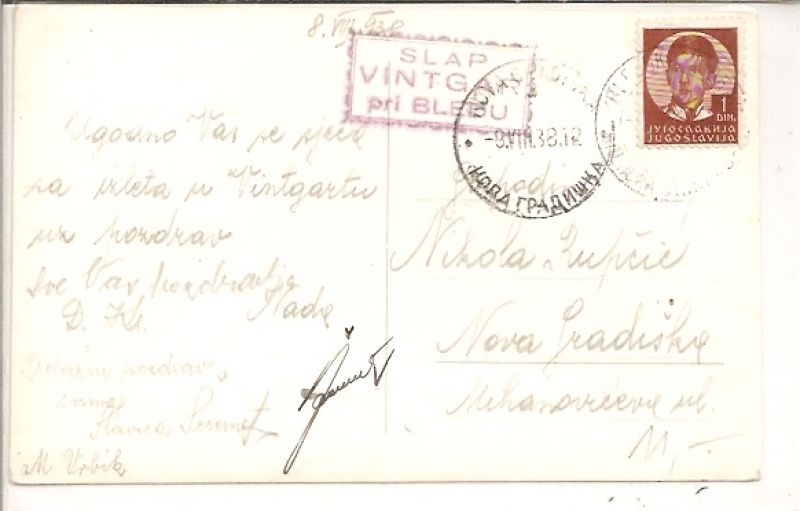 8. VIII 938
SLAP
VINTGA
pri BLEDU
NOVA GRADIŠKA
-9.VIII.38.12
НОВА ГРАДИШКА
1
DIN.
ЈУГОСЛАВИЈА
JUGOSLAVIJA
Ugodno Vas se sjeća
sa izleta u Vintgartu
uz pozdrav
sve Vas pozdravlja
D. Kr. Nada
Srdačni pozdrav
svima
Slavica
M Vrbik
Gospodin
Nikola Zupčić
Nova Gradiška
Mihanovićeva ul.
11